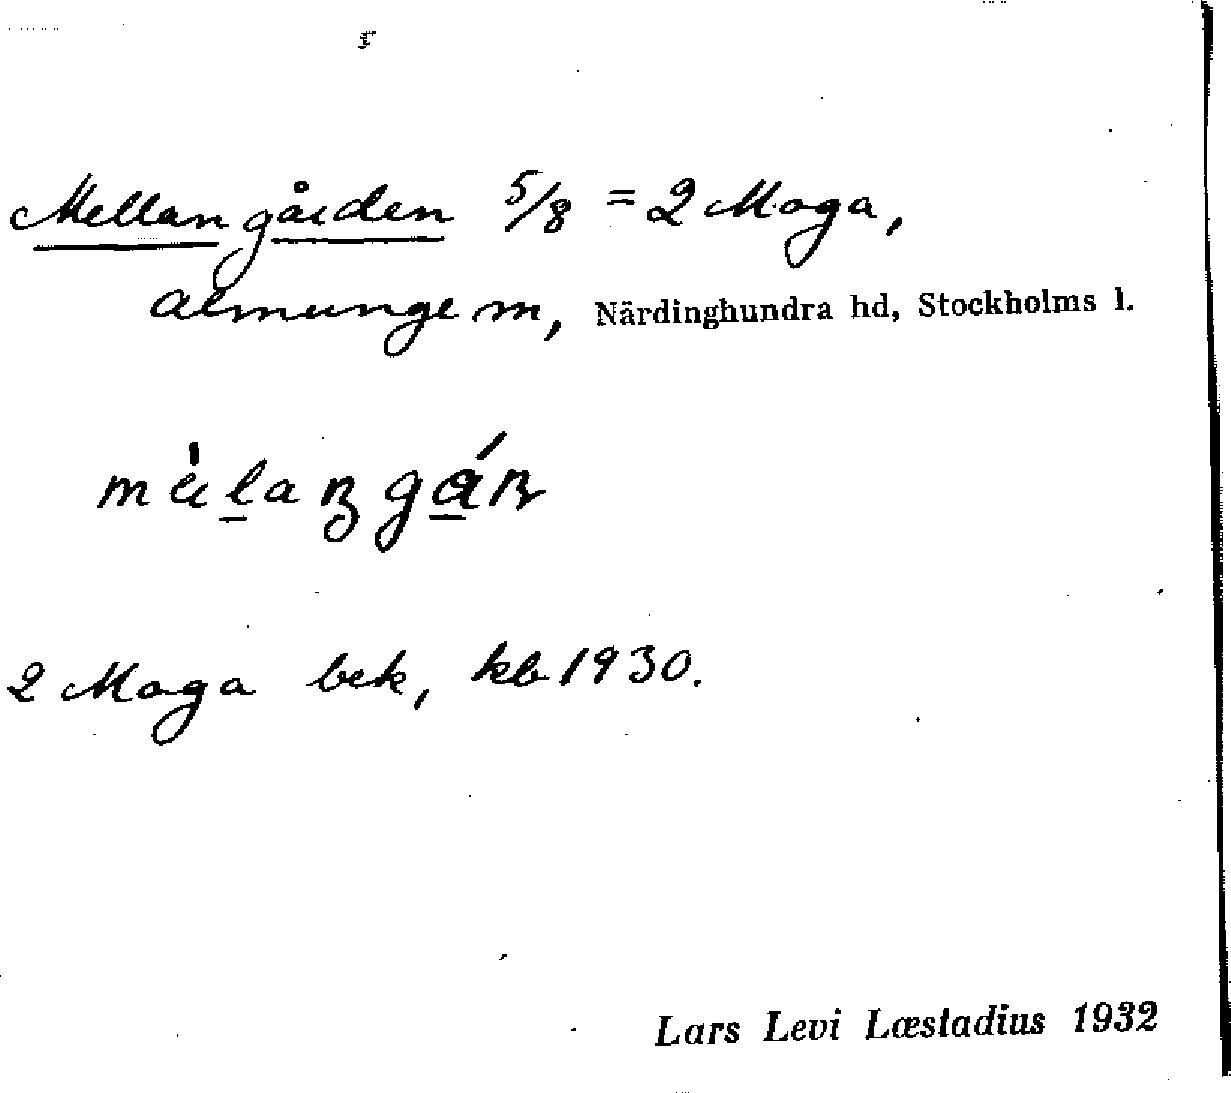 Mellangården 5/8 = 2 Moga,
Almunge sn, Närdinghundra hd, Stockholms l.
2 Moga bek, kb 1930.
Lars Levi Læstadius 1932